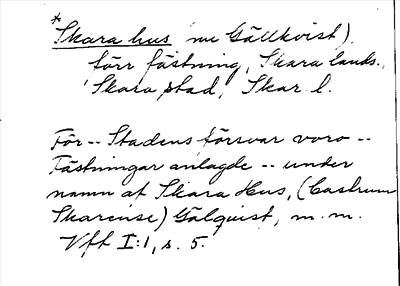 *
Skara hus, nu Gällkvist).
förr fästning, Skara lands.,
Skara stad, Skar l.
För -- Stadens försvar voro --
Fästningar anlagde -- under
namn af Skara Hus, (Castrum
Skarense) Gälquist, m.m.
Vft I:1, s. 5.